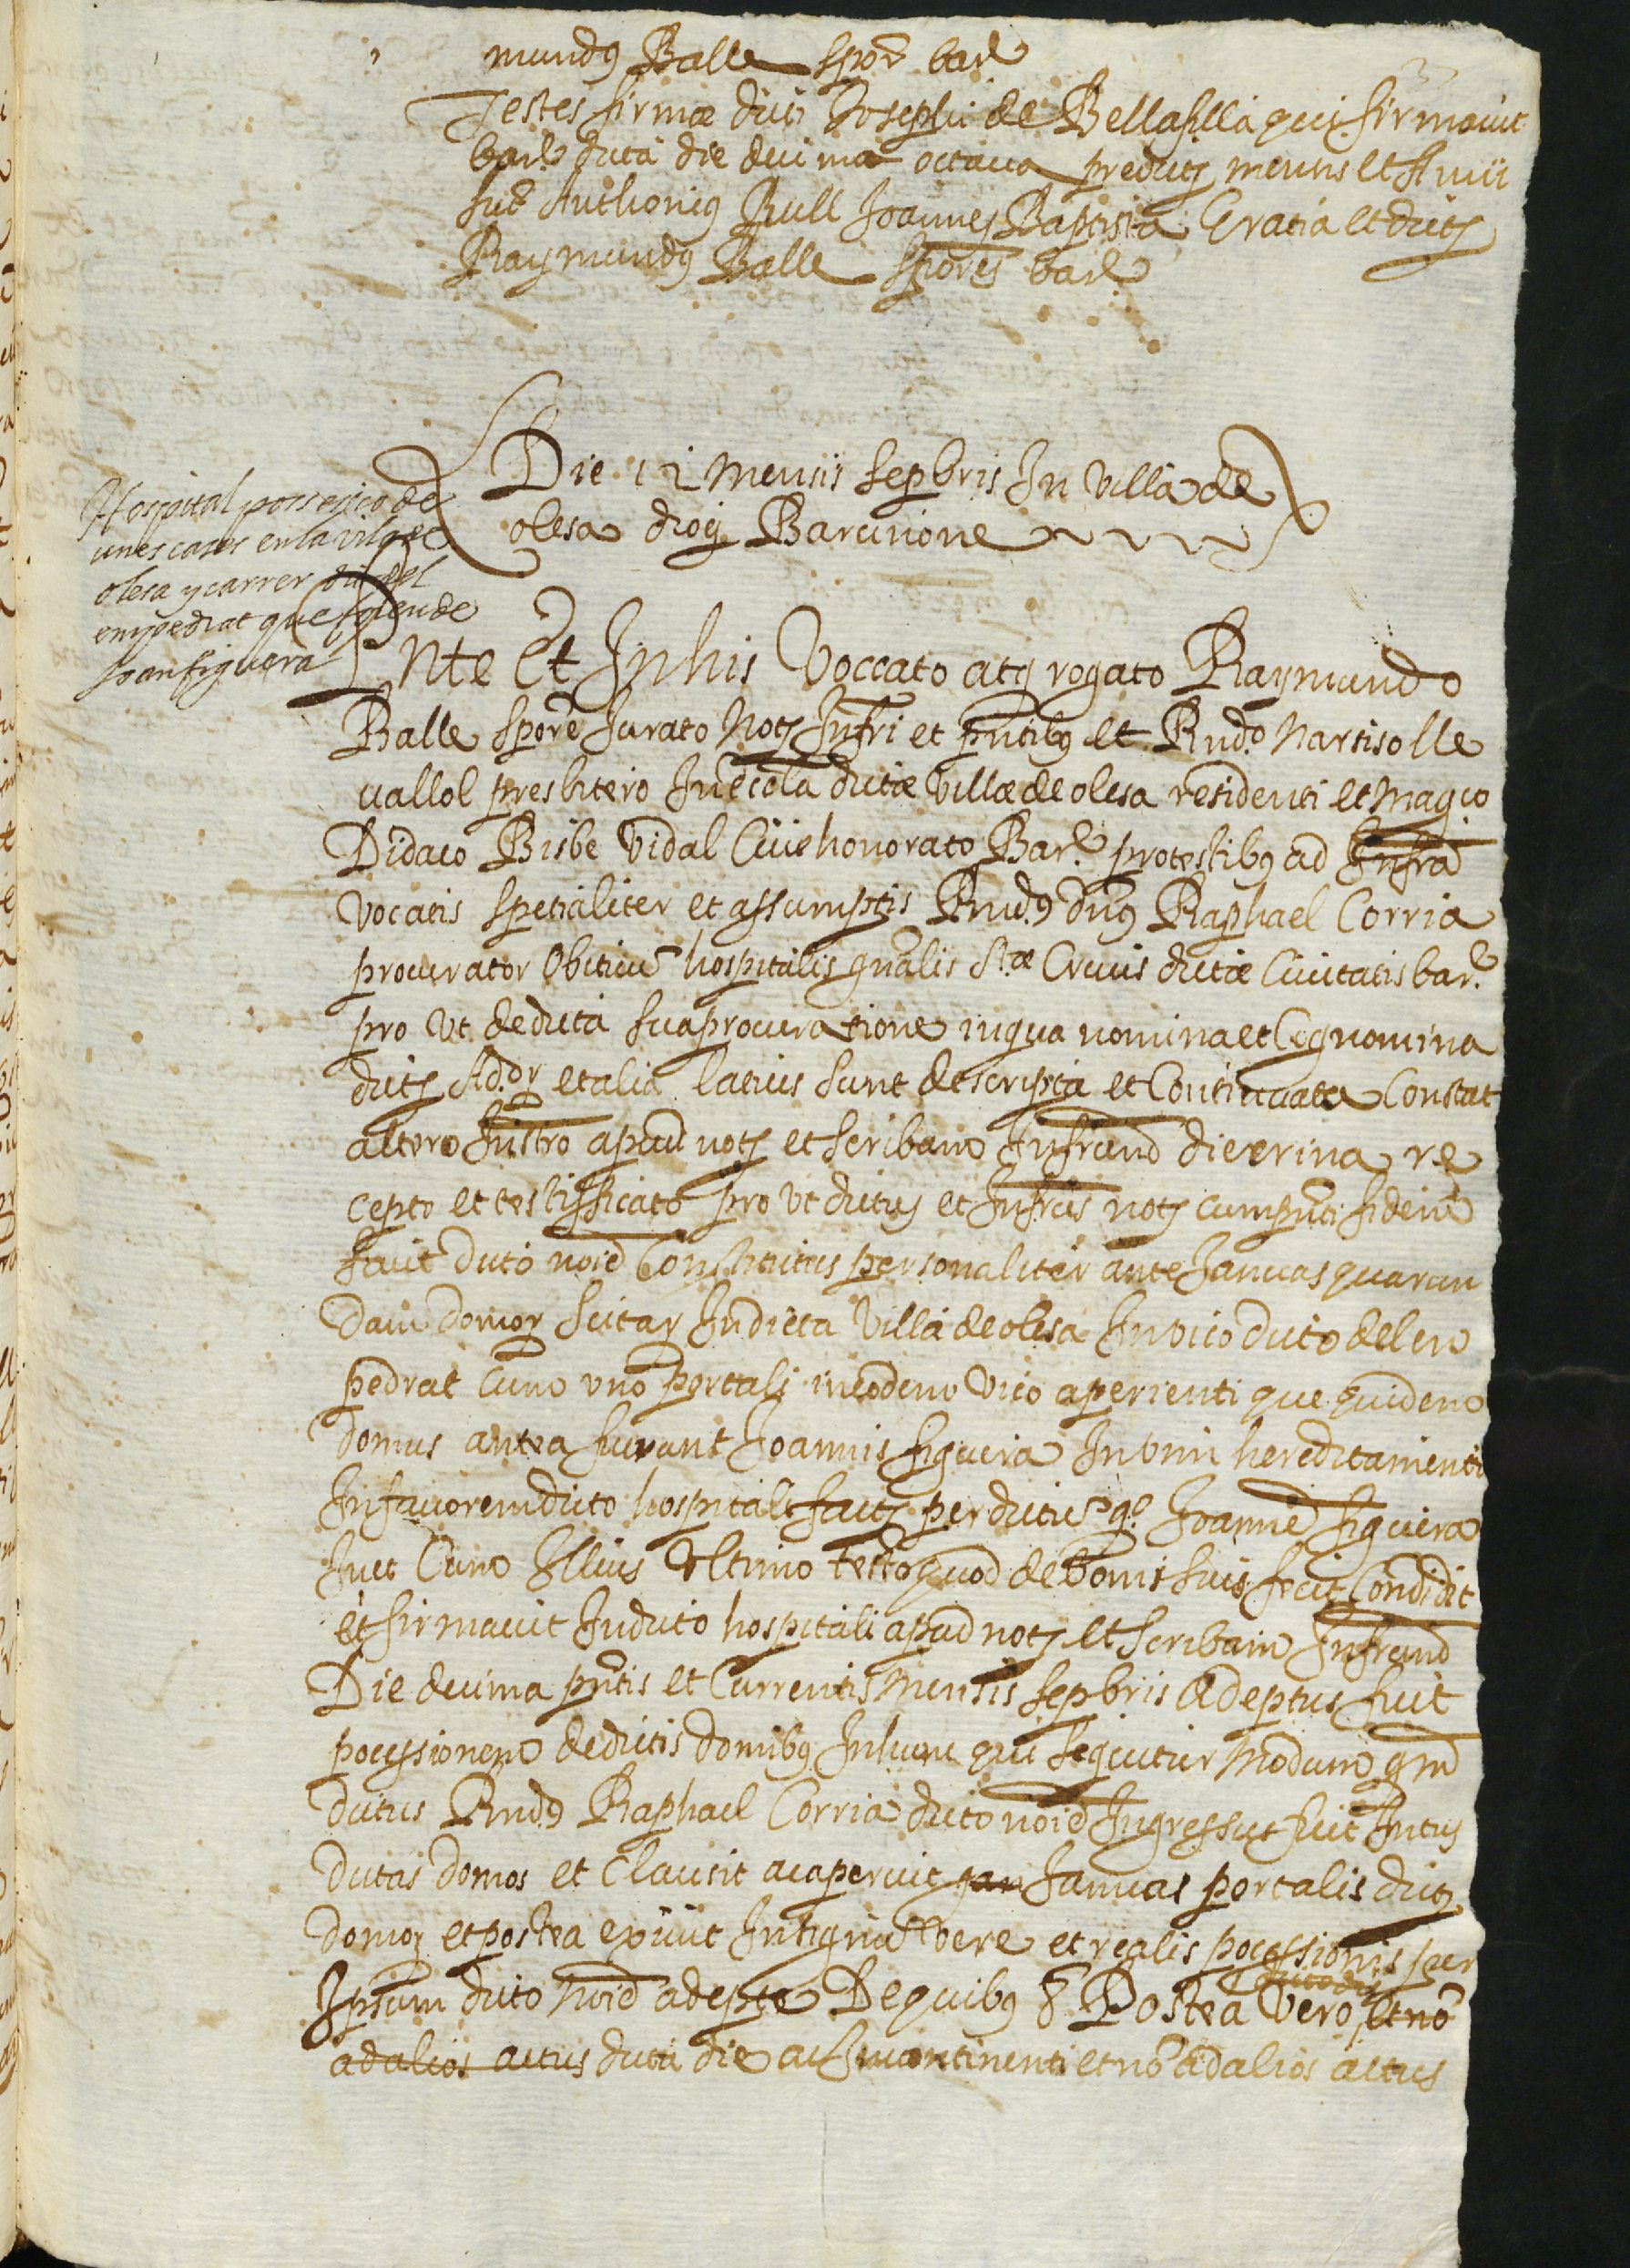 mundꝰ Balle spor̄ barᵉ
Testes firmæ dicti Josephi de Bellafilla qui firmavit
barᵉ dicta die decima octava predictȷ mensis et Anni
sūt Anthoniꝰ Rull Joannes Baptista Gratia et dictȷ
Raymundꝰ Balle spores barᵉ
Hospital possessio de
unes cases en la vila de
olesa y carrer dit del
empedrat que foren de
Joan figuera
Die 12 mensis sepbris In villa de
olesa diog Barcinone
Inte Et Inhis Voccato atq rogato Raymundo
Balle spore Jurato Notȷ Infri et pn̄tibꝰ et Rndo Narsis olle
vallol presbitero In ecc̄la dictæ villæ de olesa residenti et Magco
Didaco Bisbe Vidal Cive honorato Barᵉ pro testibꝰ ad Infra
vocatis spetialiter et assumptis Rndꝰ dn̄s Raphael Corria
procurator Obitiu hospitalis gn̄alis Stæ Crucis dictæ Civitatis barᵉ
pro vt de dicta sua procuratione in qua nomina et Cognomina
dictȷ Adōr et alia latius sunt descripta et Continuata Constat
altero Instro apud notȷ et scribam Infrānd die
cepto et testifficato pro vt dictus et Infr̄us notȷ cum pn̄ti fidem
facit dicto noīe Constitutus personaliter ante Januas quarun
dam domor scitar In dicta Villa de olesa In vico dicto del em
pedrat Cum vno portali in eodem Vico aperienti que quidem
domus antea fuerunt Joannis figuera In vim hereditamenti
In favorem dicto hospitali factȷ per dictū qo Joanne figuera
Juct Cum Illius Vltimo testo quod de bonis suis fecit Condidit
et firmavit In dicto hospitali apud notȷ et scribam Infrand
Die decima pn̄tis et Currentis Mensis sepbris Adeptus fuit
pocessionem de dictis domibꝰ In hunc qui sequitur Modum qm̄
dictus Rndꝰ Raphael Corria dicto noīe Ingressus fuit Intus
dictas domos et Clausit ac aperuit jan Januas portalis dictȷ
domor et postea exivit In signū vere et realis pocessionis per
Ipsum dicto noīe adepte De quibꝰ &. Postea vero, et nō
ad alios actus dicta die ac In continenti et nō ad alios actus